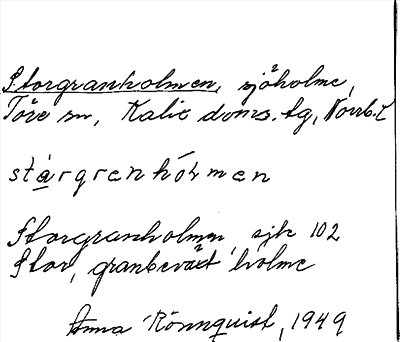 Storgranholmen, sjöholme,
Töre sn, Kalix doms. tg, Norrb. l.
stårgranhólmen
Storgranholmen, sjk 102
Stor, granbeväxt holme
Anna Rönnquist, 1949